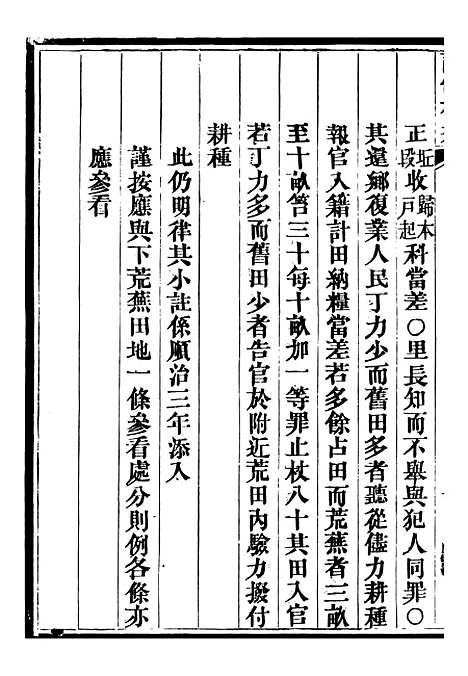 正坵段收歸本戶起科當差〇里長知而不舉與犯人同罪〇
其還鄉復業人民丁力少而舊田多者聽從儘力耕種
報官入籍計田納糧當差若多餘占田而荒蕪者三畝
至十畝笞三十每十畝加一等罪止杖八十其田入官
若丁力多而舊田少者告官於附近荒田內驗力撥付
耕種
此仍明律其小註係順治三年添入
謹按應與下荒蕪田地一條參看處分則例各條亦
應參看